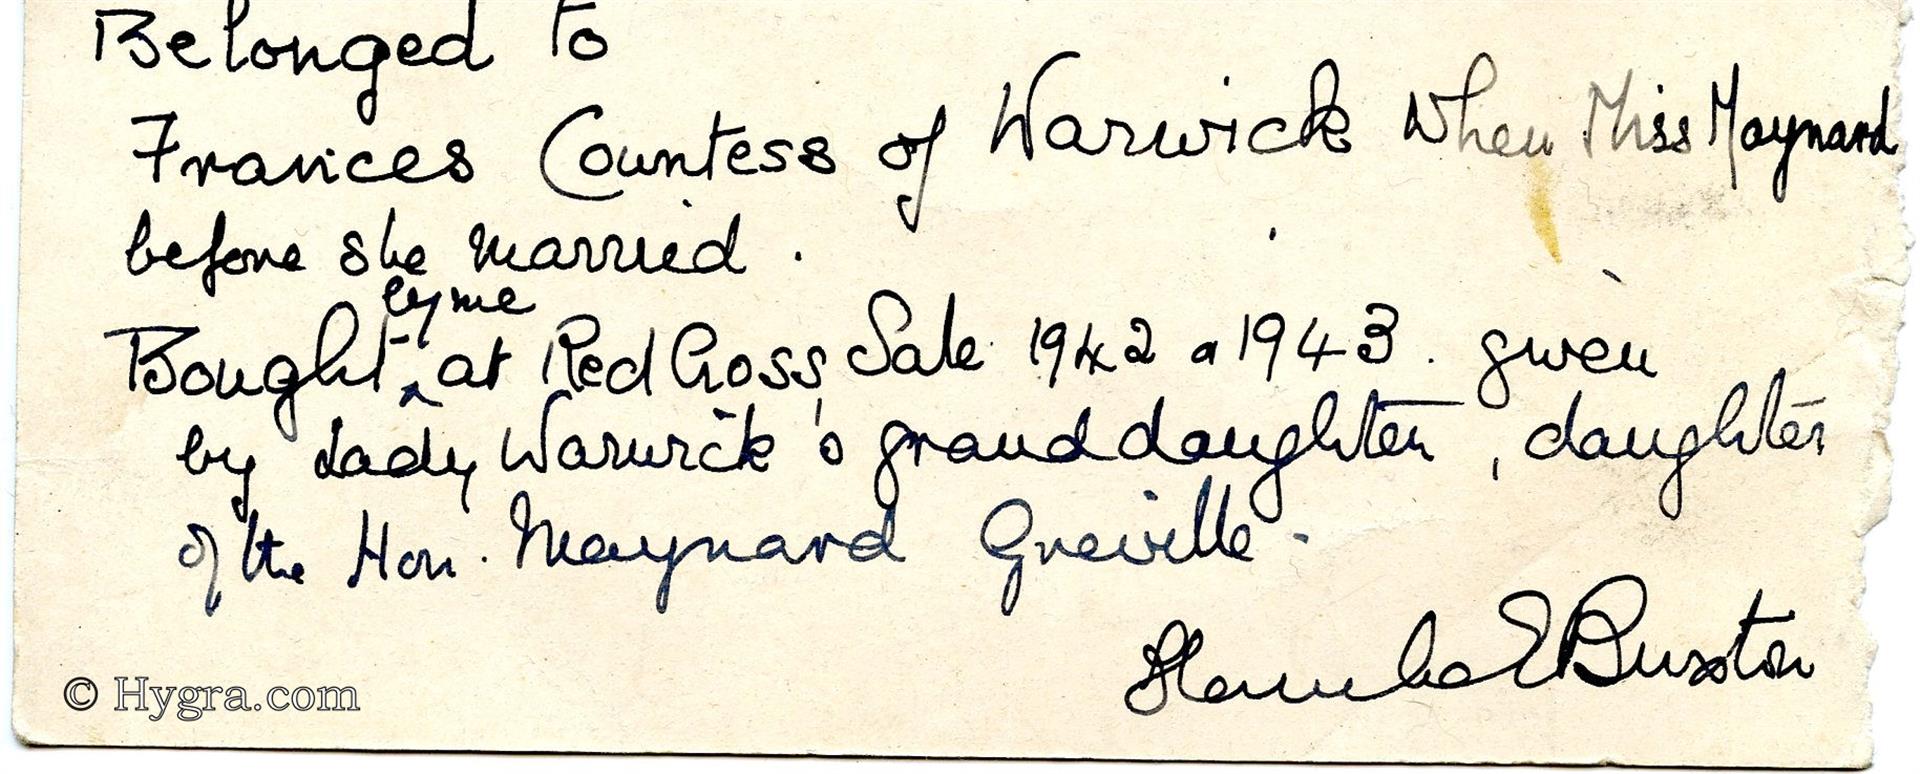 Belonged to
Frances Countess of Warwick when Miss Maynard
before she married.
by me
Bought at Red Cross Sale 1942 a 1943. given
by Lady Warwick's granddaughter, daughter
of the Hon. Maynard Greville.
E Buxton
© Hygra.com